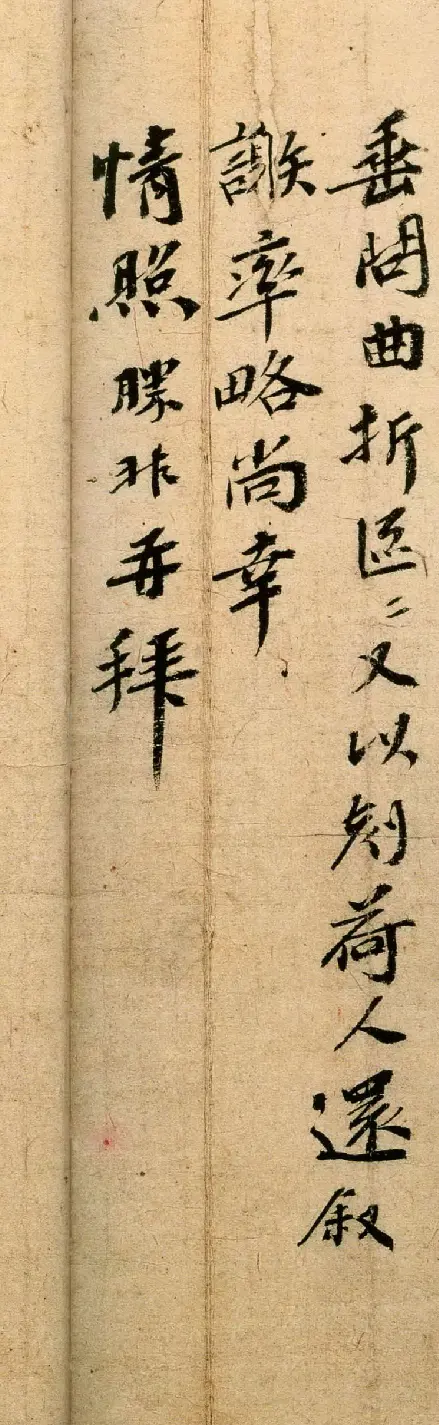 垂問曲折區〻又以刻荷人還叙
謝率略尚幸
情照勝非再拜